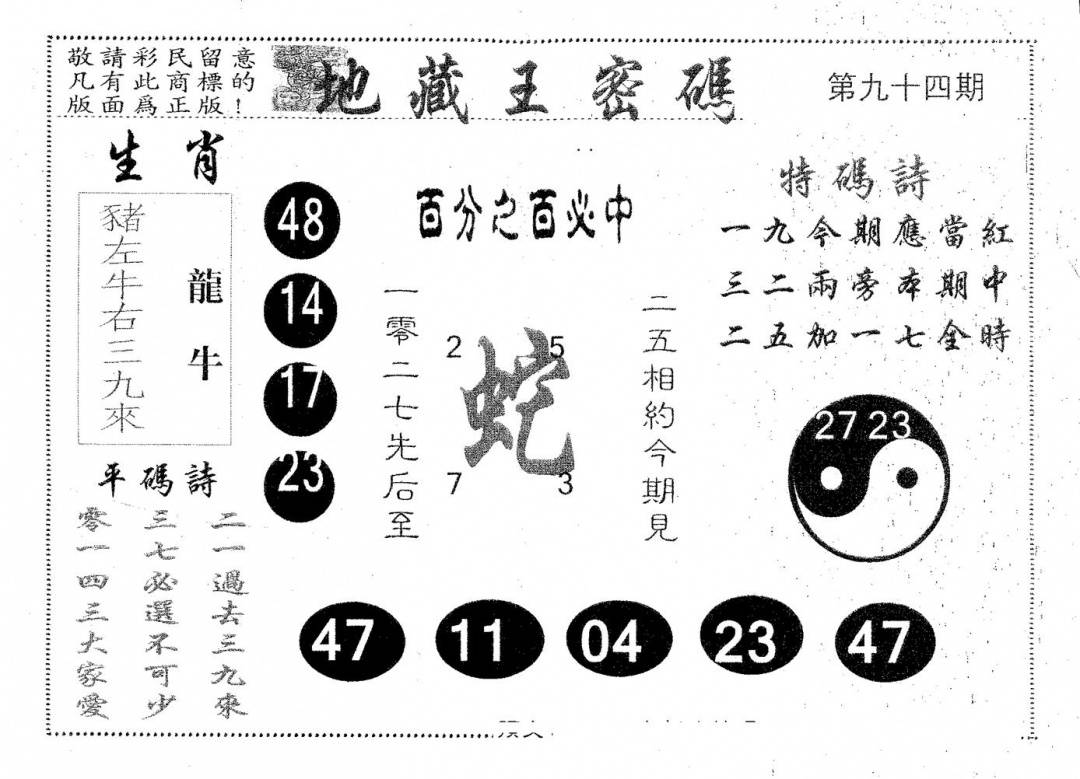 敬請彩民留意
凡有此商標的
版面爲正版！
地藏王密碼
第九十四期
生肖
豬左牛右三九來
龍牛
48
14
17
23
百分之百必中
一零二七先后至
2 5
蛇
7 3
二五相約今期見
特碼詩
一九今期應當紅
三二兩旁本期中
二五加一七全時
27 23
平碼詩
二一過去三九來
三七必選不可少
零一四三大家愛
47 11 04 23 47